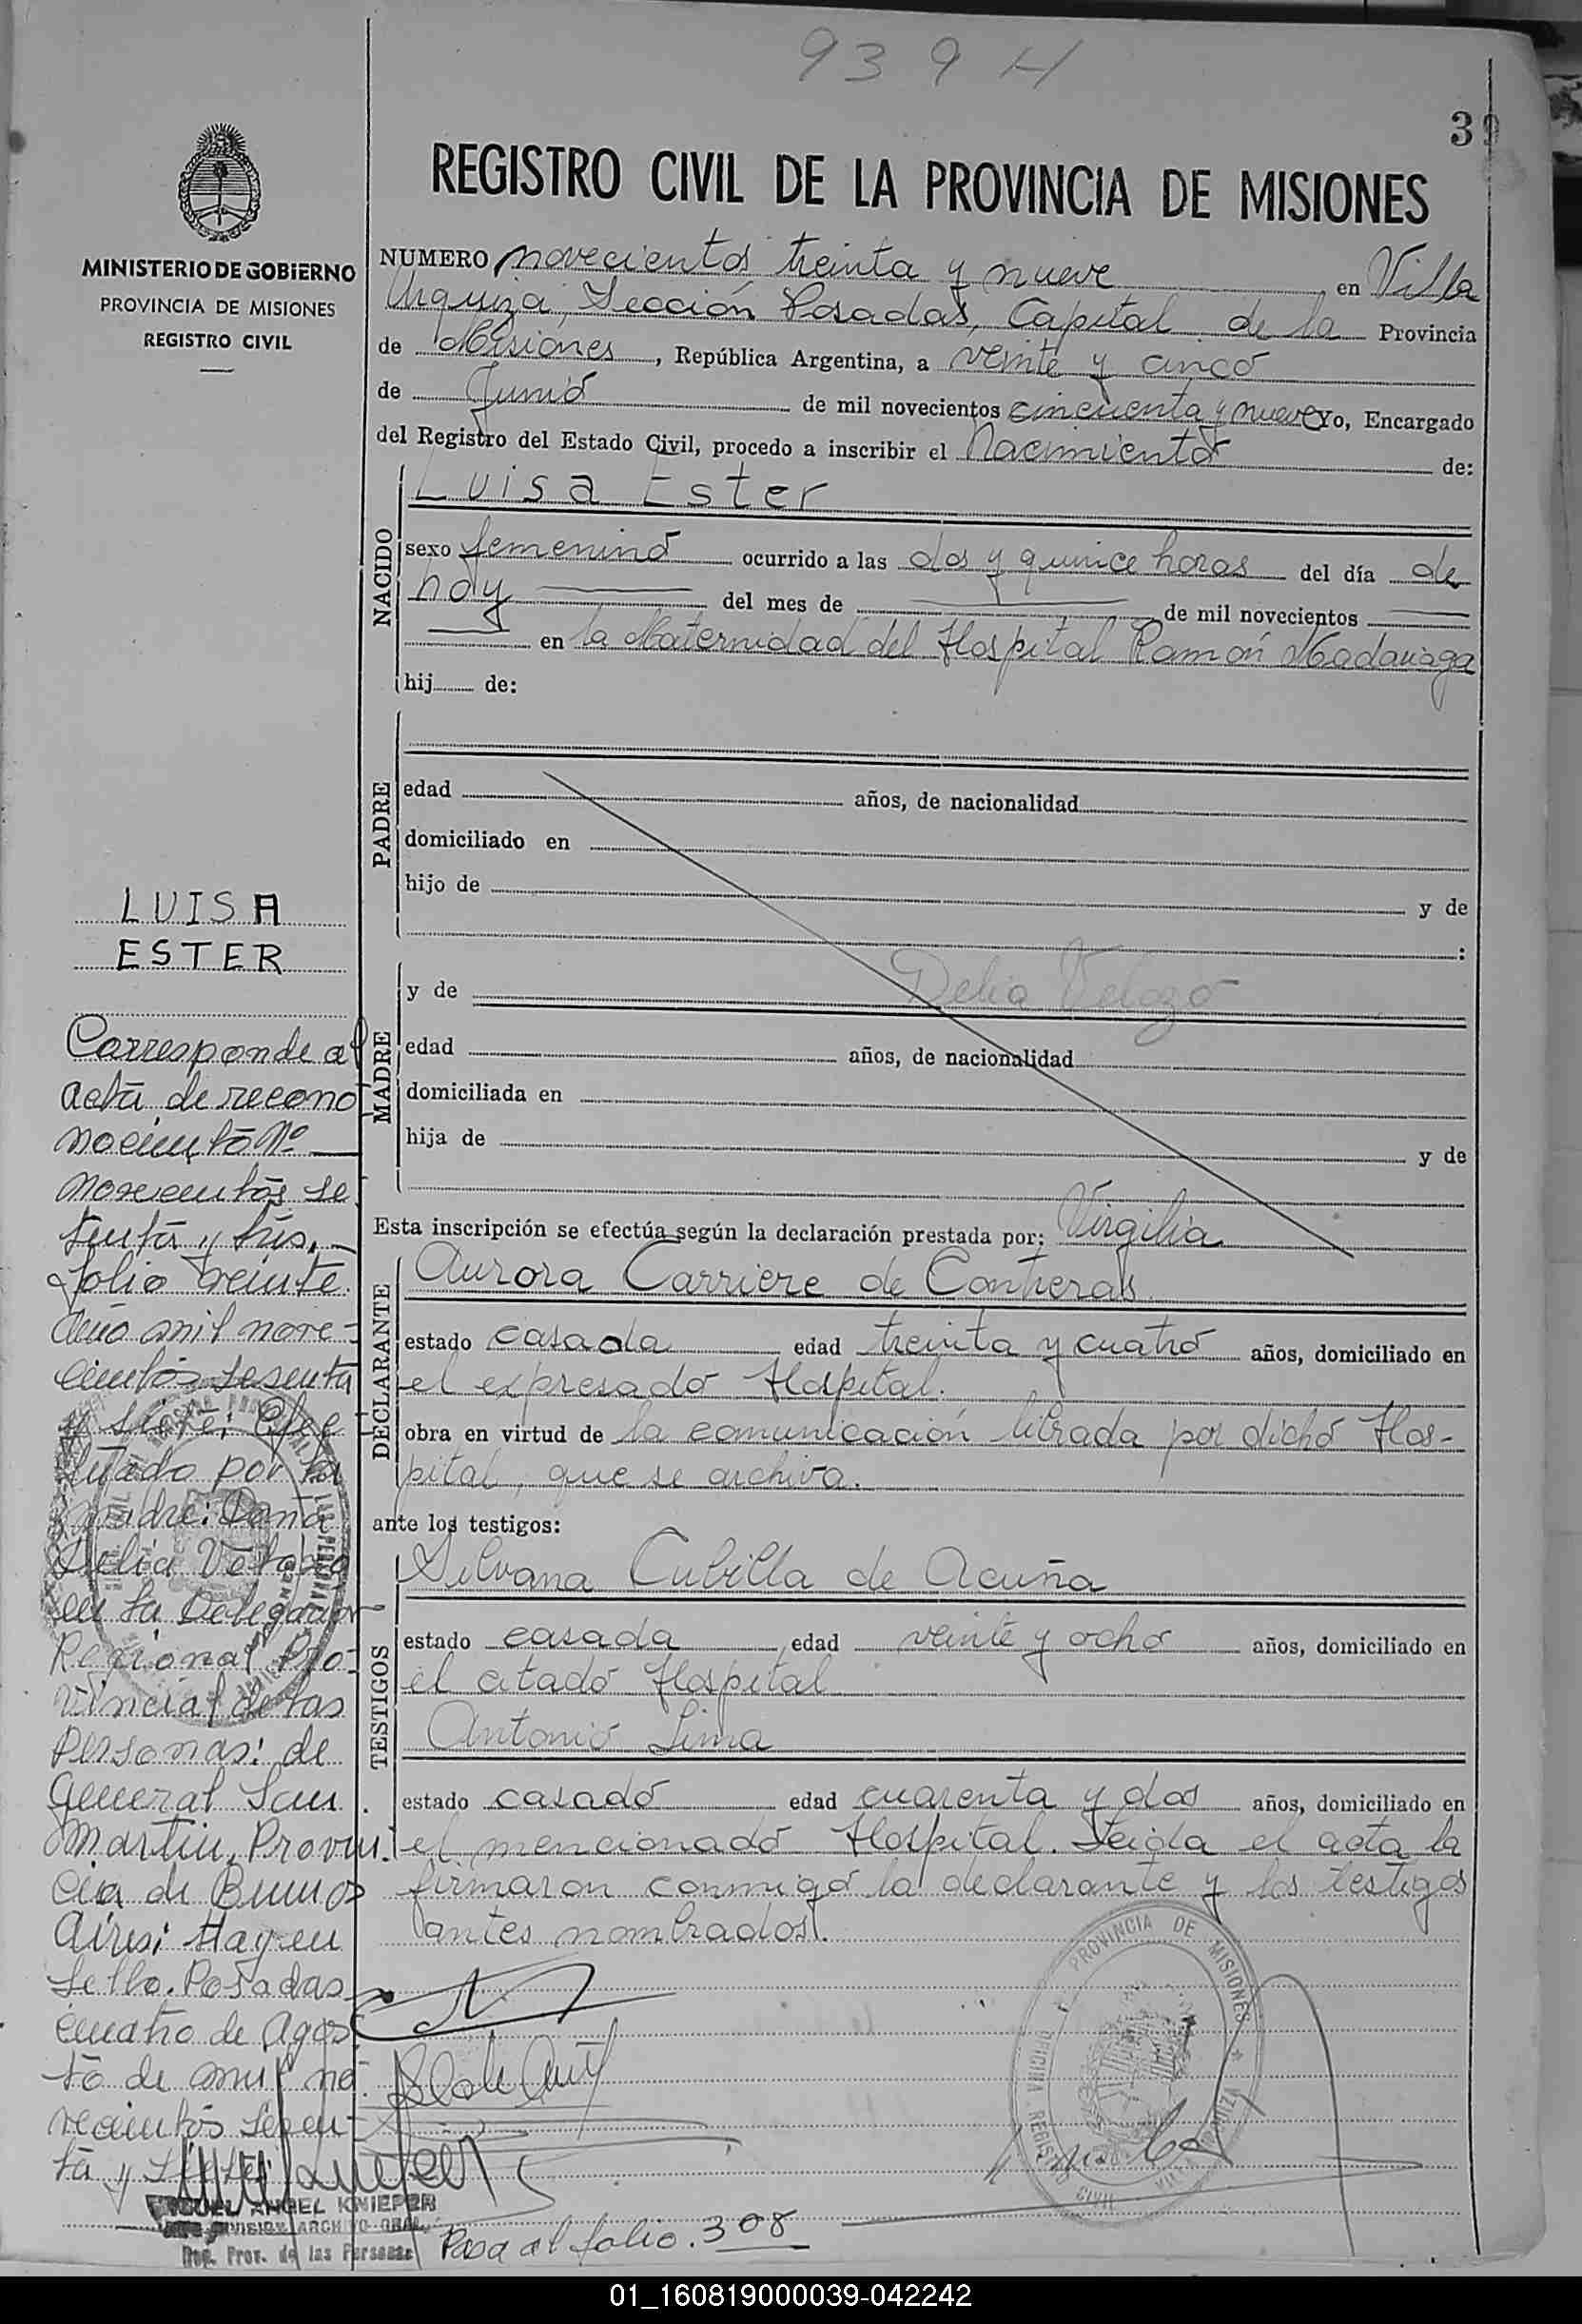 939 H
3
REGISTRO CIVIL DE LA PROVINCIA DE MISIONES
MINISTERIO DE GOBIERNO
PROVINCIA DE MISIONES
REGISTRO CIVIL
NUMERO novecientos treinta y nueve en Villa
Urquiza, Sección Posadas, Capital de la Provincia
de Misiones, República Argentina, a veinte y cinco
de Junio de mil novecientos cincuenta y nueve Yo, Encargado
del Registro del Estado Civil, procedo a inscribir el Nacimiento de:
NACIDO
Luisa Ester
sexo femenino ocurrido a las dos y quince horas del día de
hoy del mes de de mil novecientos
en la Maternidad del Hospital Ramón Madariaga
hij de:
PADRE
edad años, de nacionalidad
domiciliado en
hijo de y de
:
MADRE
y de Delia Velozo
edad años, de nacionalidad
domiciliada en
hija de y de
Esta inscripción se efectúa según la declaración prestada por: Virgilia
DECLARANTE
Aurora Carriere de Contreras
estado casada edad treinta y cuatro años, domiciliado en
el expresado Hospital.
obra en virtud de la comunicación librada por dicho Hos-
pital, que se archiva.
ante los testigos:
TESTIGOS
Silvana Cubilla de Acuña
estado casada edad veinte y ocho años, domiciliado en
el citado Hospital
Antonio Lima
estado casado edad cuarenta y dos años, domiciliado en
el mencionado Hospital. Leida el acta la
firmaron conmigo la declarante y los testigos
antes nombrados.
LUISA
ESTER
Corresponde al
acta de recono
nocimiento Nº
novecientos se
tenta y tres,
folio treinta
Año mil nove-
cientos sesenta
y siete; efec
tuado por la
madre: Doña
Delia Velozo
en la Delegación
Regional Pro-
vincial de las
Personas: de
General San
Martin, Provin
cia de Buenos
Aires; Hay un
sello. Posadas
cuatro de Agos
to de mil no
vecientos sesen-
ta y siete
MIGUEL ANGEL KNIEPER
DIVISION ARCHIVO GRAL.
Reg. Prov. de las Personas
PROVINCIA DE MISIONES
REGISTRO CIVIL
VILLA URQUIZA
Pasa al folio. 308
01_160819000039-042242